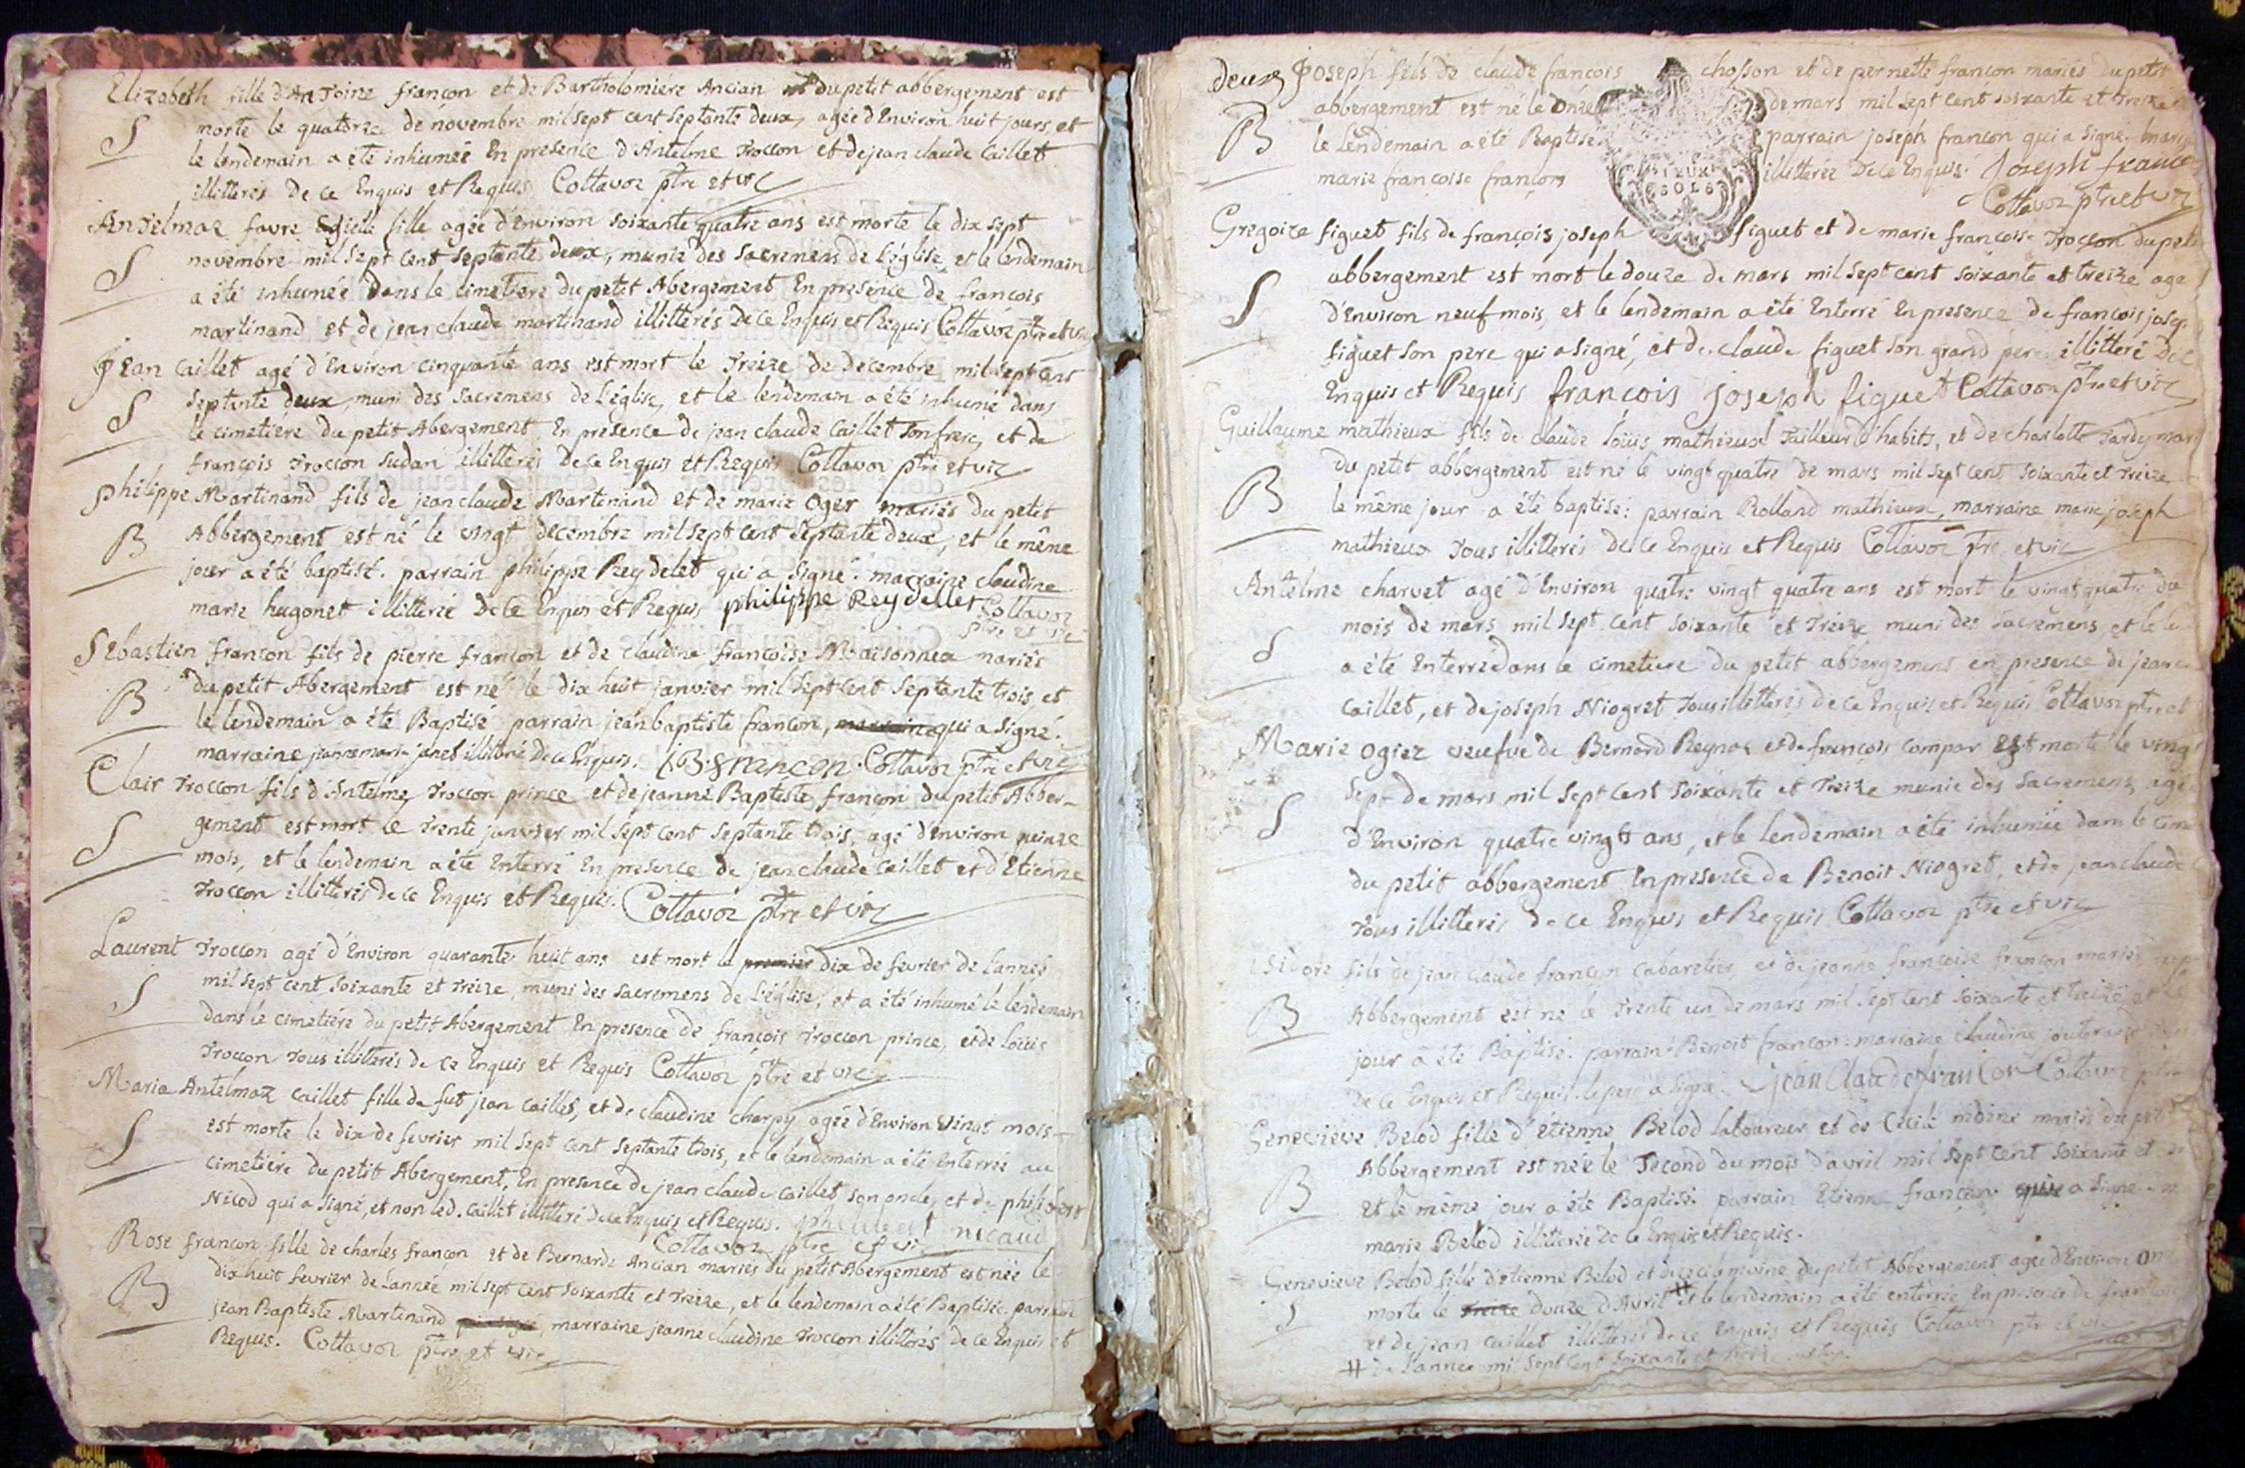 Elizabeth fille d'Antoine françon et de Bartholomiére Ancian du petit abbergement est
S morte le quatorze de novembre mil sept cent septante deux, agée d'Environ huit jours, et
le lendemain a été inhumée En presence d'Antelme Troccon et de jean claude Caillet
illitterés De ce Enquis et Requis Cottavoz ptre et vic
Antelmaz favre fille agée d'Environ soixante quatre ans est morte le dix sept
S novembre mil sept cent septante deux, munie des sacremens de L'église, et le lendemain
a été inhumée dans le cimetiere du petit Abergement En presence de françois
martinand et de jean claude martinand illitterés De ce Enquis et Requis Cottavoz ptre et vic
Jean Caillet agé d'Environ cinquante ans est mort le Treize de decembre mil sept cent
S septante deux, muni des sacremens de L'église, et le lendemain a été inhumé dans
le cimetiere du petit Abergement En presence de jean claude Caillet son frere, et de
françois Troccon sudan illitterés De ce Enquis et Requis Cottavoz ptre et vic
Philippe Martinand fils de jean claude Martinand et de marie Oger mariés du petit
B Abbergement est né le vingt decembre mil sept cent septante deux, et le même
jour a été baptisé. parrain philippe Reydelet qui a signé. marraine claudine
marie hugonet illitterée De ce Enquis et Requis philippe Reydellet Cottavoz
ptre et vic
Sebastien françon fils de pierre françon et de claudine francoise Maisonnea mariés
B du petit Abergement est né le dix huit janvier mil sept cent septante trois et
le lendemain a été Baptisé parrain jean baptiste françon, qui a signé.
marraine jeanne marie janet illitteré De ce Enquis. J.B. francon. Cottavoz ptre et vic
Clair Troccon fils d'Antelme Troccon prince et de jeanne Baptiste françon du petit Abber-
S gement est mort le Trente janvier mil sept cent septante trois, agé d'Environ quinze
mois, et le lendemain a été Enterré En presence de jean claude Caillet et d'Etienne
Troccon illitterés de ce Enquis et Requis. Cottavoz ptre et vic
Laurent Troccon agé d'Environ quarante huit ans est mort le premier dix de fevrier de L'année
S mil sept cent soixante et treize, muni des sacremens de L'église, et a été inhumé le lendemain
dans le cimetiére du petit Abergement En presence de françois Troccon prince, et de Loüis
Troccon Tous illitterés de ce Enquis et Requis Cottavoz ptre et vic
Marie Antelmaz Caillet fille de fut jean Caillet, et de claudine Charpy agée d'Environ vingt mois
S est morte le dix de fevrier mil sept cent septante trois, et le lendemain a été Enterrée au
cimetiére du petit Abergement, En presence de jean claude Caillet son oncle, et de philibert
Nicod qui a signé, et non led. Caillet illitteré de ce Enquis et Requis. philibert nicaud
Cottavoz ptre et vic
Rose françon fille de charles françon et de Bernarde Ancian mariés du petit Abergement est née le
B dix huit fevrier de L'année mil sept cent soixante et Treize, et le lendemain a été Baptisée. parrain
jean Baptiste Martinand, marraine jeanne claudine Troccon illitterés de ce Enquis et
Requis. Cottavoz ptre et vic
deux Joseph fils de claude françois chosson et de pernette françon mariés du petit
B abbergement est né le onze de mars mil sept cent soixante et treize
le Lendemain a été Baptisé parrain joseph françon qui a signé
marie françoise françon illitterée De ce Enquis. Joseph franco
DEUX SOLS
Cottavoz ptre et vic
Gregoire figuet fils de françois joseph figuet et de marie francoise Troccon du petit
S abbergement est mort le douze de mars mil sept cent soixante et treize agé
d'Environ neuf mois, et le lendemain a été Enterré En presence de françois josep
figuet son pere qui a signé, et de claude figuet son grand pere illitteré De ce
Enquis et Requis françois joseph figuet Cottavoz ptre et vic
Guillaume mathieux fils de claude loüis mathieux Tailleur d'habits, et de charlotte Tardy
B du petit abbergement est né le vingt quatre de mars mil sept cent soixante et treize
le même jour a été baptisé: parrain Rolland mathieux, marraine marie joseph
mathieux Tous illitterés De ce Enquis et Requis Cottavoz ptre et vic
Antelme charvet agé d'Environ quatre vingt quatre ans est mort le vingt quatre du
S mois de mars mil sept cent soixante et treize muni des sacremens, et le
a été Enterré dans le cimetiere du petit abbergement en presence de jean
Caillet, et de joseph Niogret Tous illitterés De ce Enquis et Requis Cottavoz ptre et
Marie Ogier veufve de Bernard Reynaz et de françois compar Est morte le ving
S sept de mars mil sept cent soixante et Treize munie des sacremens, agé
d'Environ quatre vingts ans, et le lendemain a été inhumée dans le cime
du petit abbergement En presence de Benoit Niogret, et de jean claude
Tous illitterés de ce Enquis et Requis Cottavoz ptre et vic
isidore fils de jean claude françon cabaretier et de jeanne françoise françon mariés
B Abbergement est né le Trente un de mars mil sept cent soixante et treize, et le
jour a été Baptisé. parrain Benoit françon: marraine claudine
de ce Enquis et Requis. le pere a signé. jean Claude françon Cottavoz ptre
Genevieve Belod fille d'étienne Belod laboureur et de Cécile moine mariés du petit
B Abbergement est née le Second du mois d'avril mil sept cent soixante et
et le même jour a été Baptisée parrain Etienne françon qui a signé
marie Belod illitterée de ce Enquis et Requis.
Genevieve Belod fille d'étienne Belod et de cécile moine du petit Abbergement agée d'Environ onze
S morte le treize douze d'Avril # et le lendemain a été enterrée En presence de françois
et de jean Caillet illitterés de ce Enquis et Requis Cottavoz ptre et vic
# de l'année mil sept cent soixante et treize